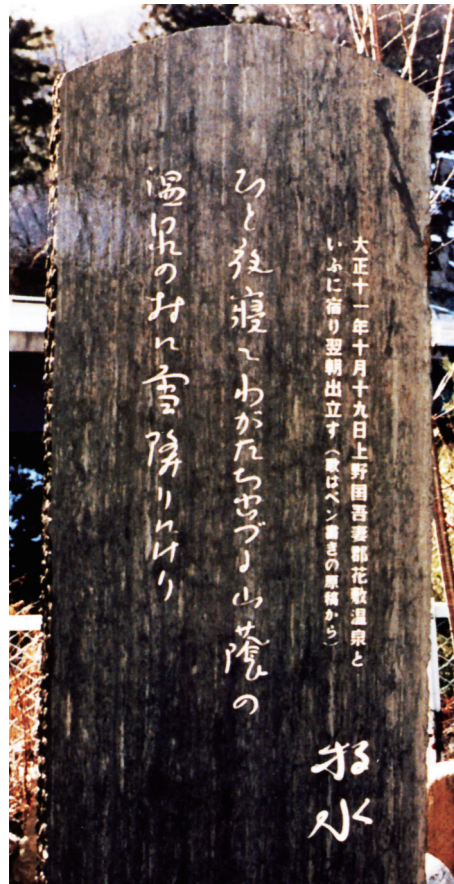 大正十一年十月十九日上野国吾妻郡花敷温泉と
いふに宿り翌朝出立す(歌はペン書きの原稿から)
ひと夜寝てわがたち出づる山蔭の
温泉の村に雪降りにけり
牧水